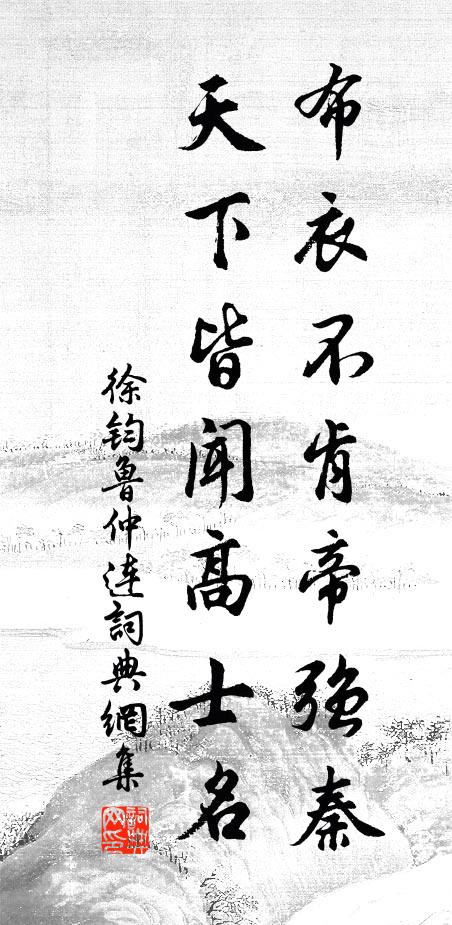 布衣不肯帝強秦
天下皆聞高士名
徐鈞魯仲連詞典網集